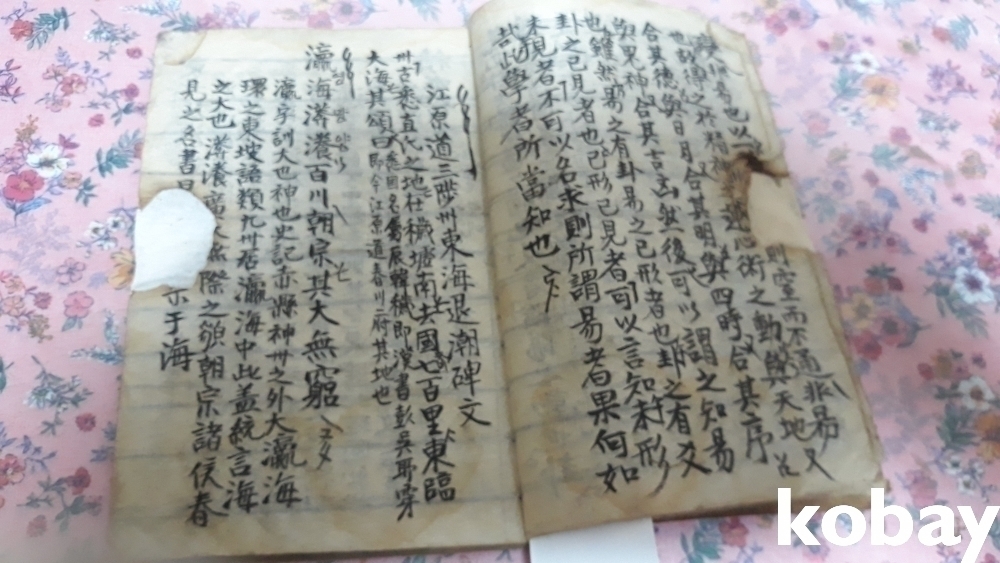 則窒而不通非易又
心術之動與天地
合其德與日月合其明與四時合其序
與鬼神合其吉凶然後可以謂之知易
也雖然易之有卦易之已形者也卦之有爻
卦之已見者也已形已見者可以言知未形
未見者不可以名求則所謂易者果何如
哉此學者所當知也
江原道三陟州東海退潮碑文
州古悉直氏之地在穢墟南去國七百里東臨
大海其頌曰
即今江原道春川府其地也
瀛海漭瀁百川朝宗其大無窮
형 망 양
瀛字訓大也神也史記赤縣神州之外大瀛海
環之東坡詩類九州居瀛海中此盖統言海
之大也漭瀁
無際之貌朝宗諸侯春
見之名書曰
宗于海
kobay